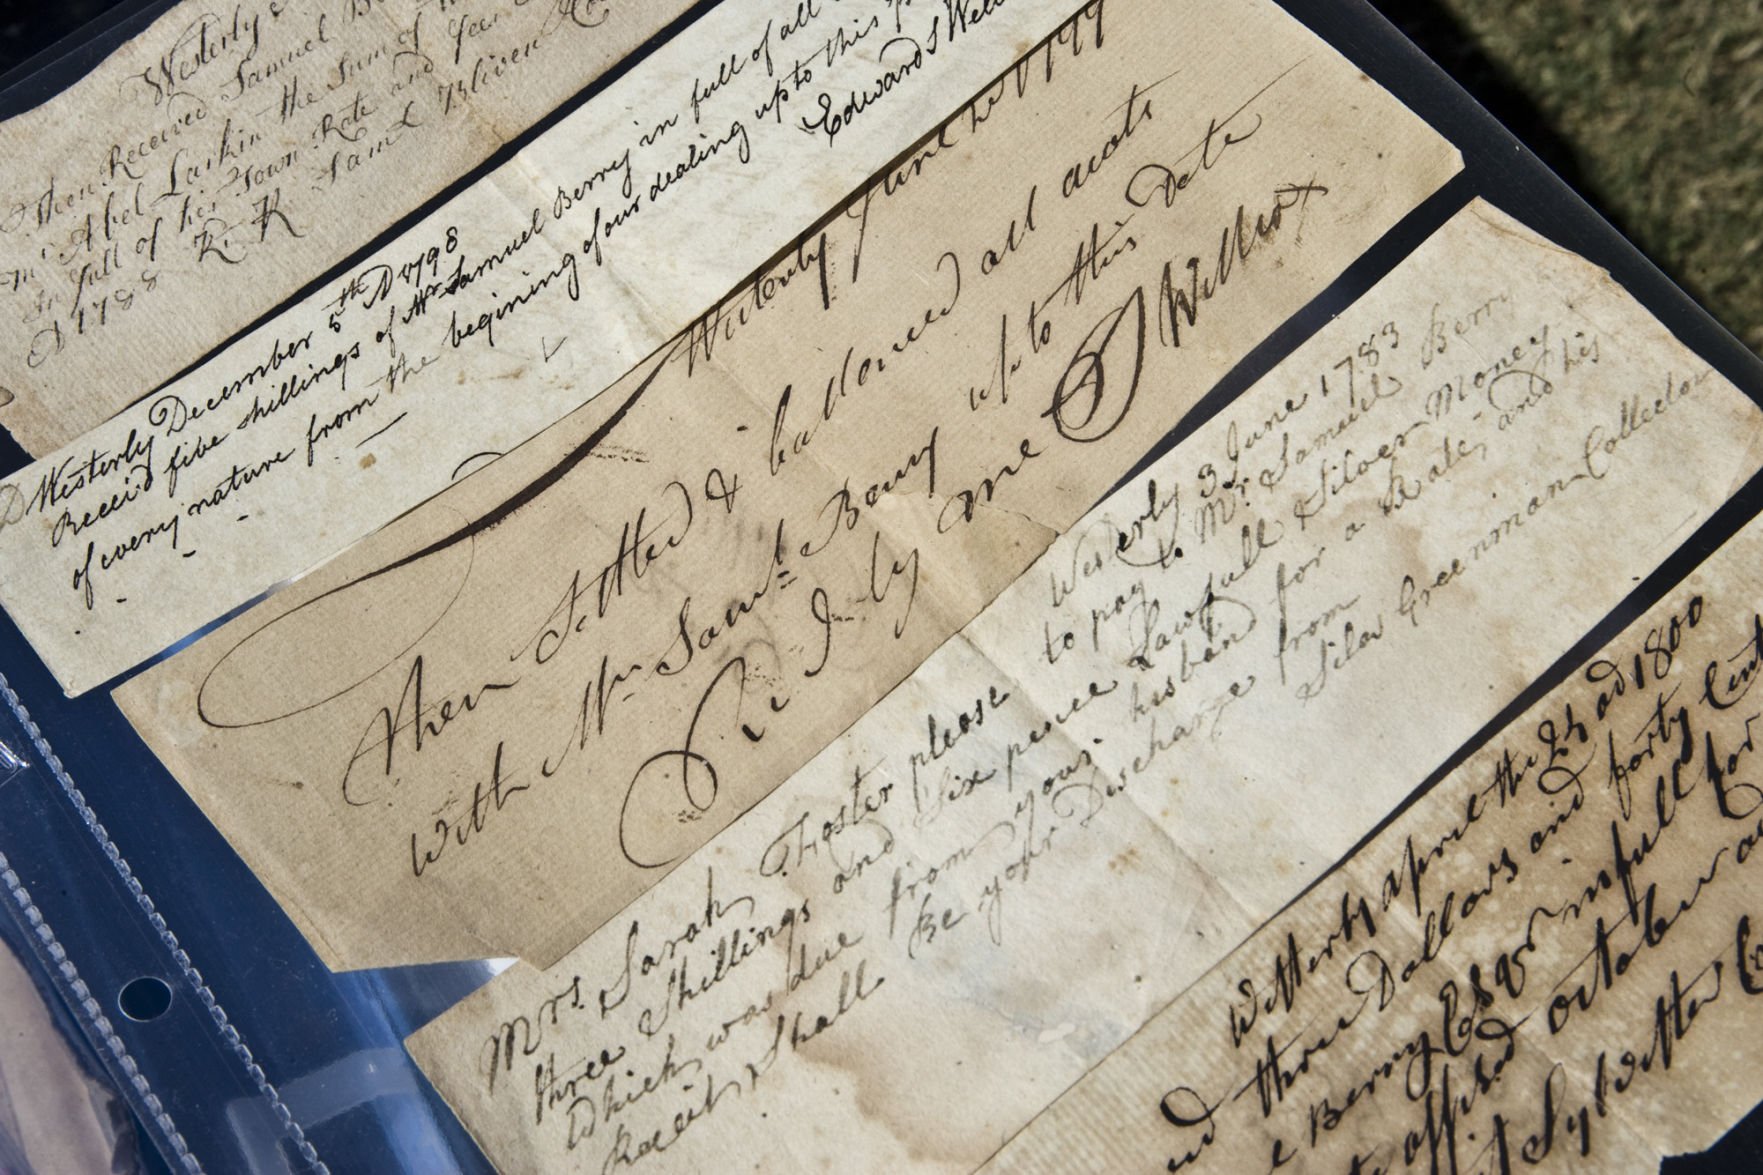 Westerly
Then Received Samuel
Mr Abel Larkin the Sum of
In full of his Town Rate and Year
AD 1788 Saml Bliven
Westerly December 5th AD 1798
Receiv'd five shillings of Mr Samuel Berry in full of all
of every nature from the begining of our dealing up to this
Edward S
Westerly June 1799
then Settled & ballenced all accts
with Mr Saml Berry up to this Date
by me J Willcox
Westerly 3 June 1783
Mrs. Sarah Foster please to pay to Mr Samuel Berry
three Shillings and Six pence Lawfull Silver Money
Which was due from your husband for a Rate; and his
Receipt Shall Be your Discharge from
Silas Greenman Collector
Westerly april the 25 ad 1800
three Dollars and forty Cent
Berry Esqr in full for
october
Sylvester